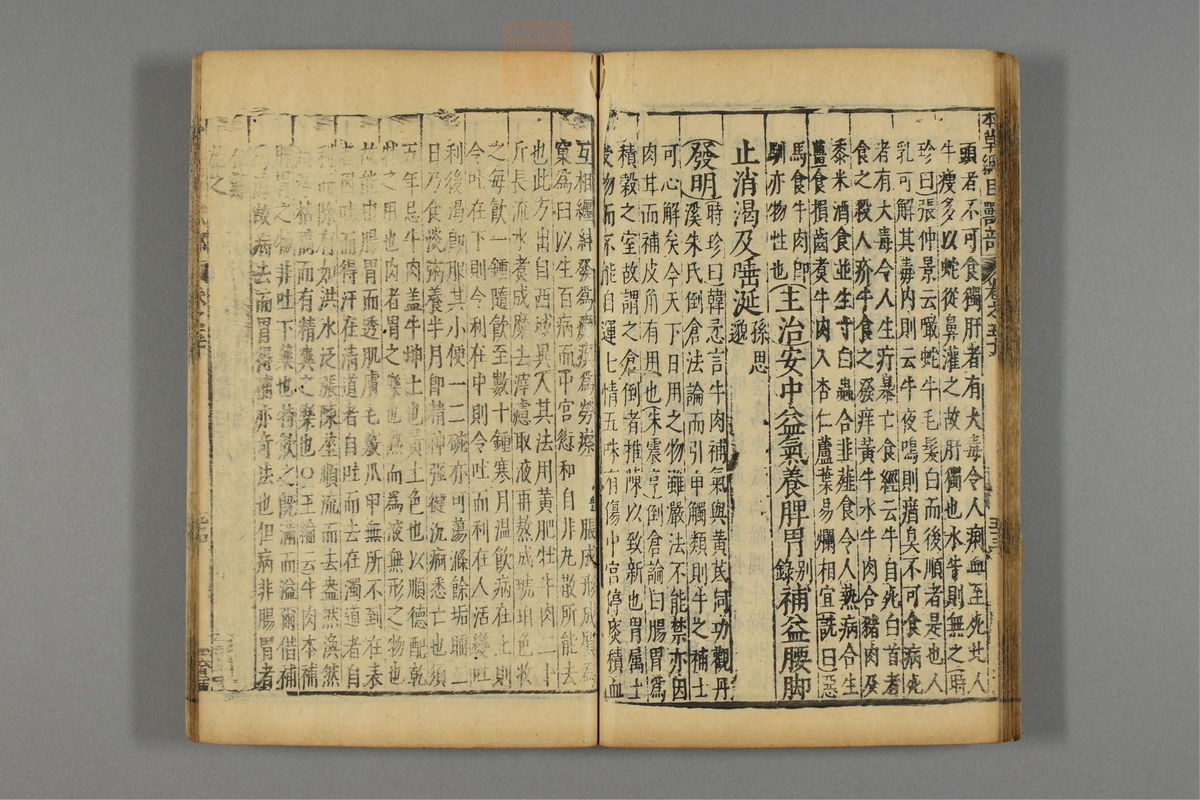 本草綱目獸部
頭者不可食獨肝者有大毒令人痢血至死北人
牛瘦多以蛇從鼻灌之故肝獨也水牛則無之時
珍曰張仲景云噉蛇牛毛髮白而後順者是也人
乳可解其毒內則云牛夜鳴則瘖臭不可食病死
者有大毒令人生疔暴亡食經云牛自死白首者
食之殺人疥牛食之發痒黃牛水牛肉合豬肉及
黍米酒食並生寸白蟲合韭薤食令人熱病合生
薑食損齒煮牛肉入杏仁蘆葉易爛相宜詵曰惡
馬食牛肉卽馴亦物性也主治安中益氣養脾胃別錄補益腰脚
止消渴及唾涎孫思邈
發明時珍曰韓𢘅言牛肉補氣與黃芪同功觀丹
溪朱氏倒倉法論而引申觸類則牛之補土
可心解矣今天下日用之物雖嚴法不能禁亦因
肉甘而補皮角有用也朱震亨倒倉論曰腸胃為
積穀之室故謂之倉倒者推陳以致新也胃屬土
受物而不能自運七情五味有傷中宮停痰積血
互相纏糾發為癱瘓為勞瘵 脹成形成質為
窠為臼以生百病而中宮愆和自非丸散所能去
也此方出自西域異人其法用黃肥牡牛肉二十
斤長流水煮成糜去滓濾取液再熬成琥珀色收
之每飲一鍾隨飲至數十鍾寒月溫飲病在上則
令吐在下則令利在中則令吐而利在人活變吐
利後渴卽服其小便一二碗亦可蕩滌餘垢睡二
日乃食淡粥養半月卽精神强健沉疴悉亡也須
五年忌牛肉蓋牛坤土也黃土色也以順德配乾
之用也肉者胃之藥也熟而為液無形之物也
故能由腸胃而透肌膚毛竅爪甲無所不到在表
者因吐而得汗在清道者自吐而去在濁道者自
利而除有如洪水泛漲陳莝順流而去盎然渙然
潤澤枯槁而有精爽之樂也○王綸云牛肉本補
脾胃之物非吐下藥也特飲之旣滿而溢爾借補
為瀉故病去而胃得補亦奇法也但病非腸胃者